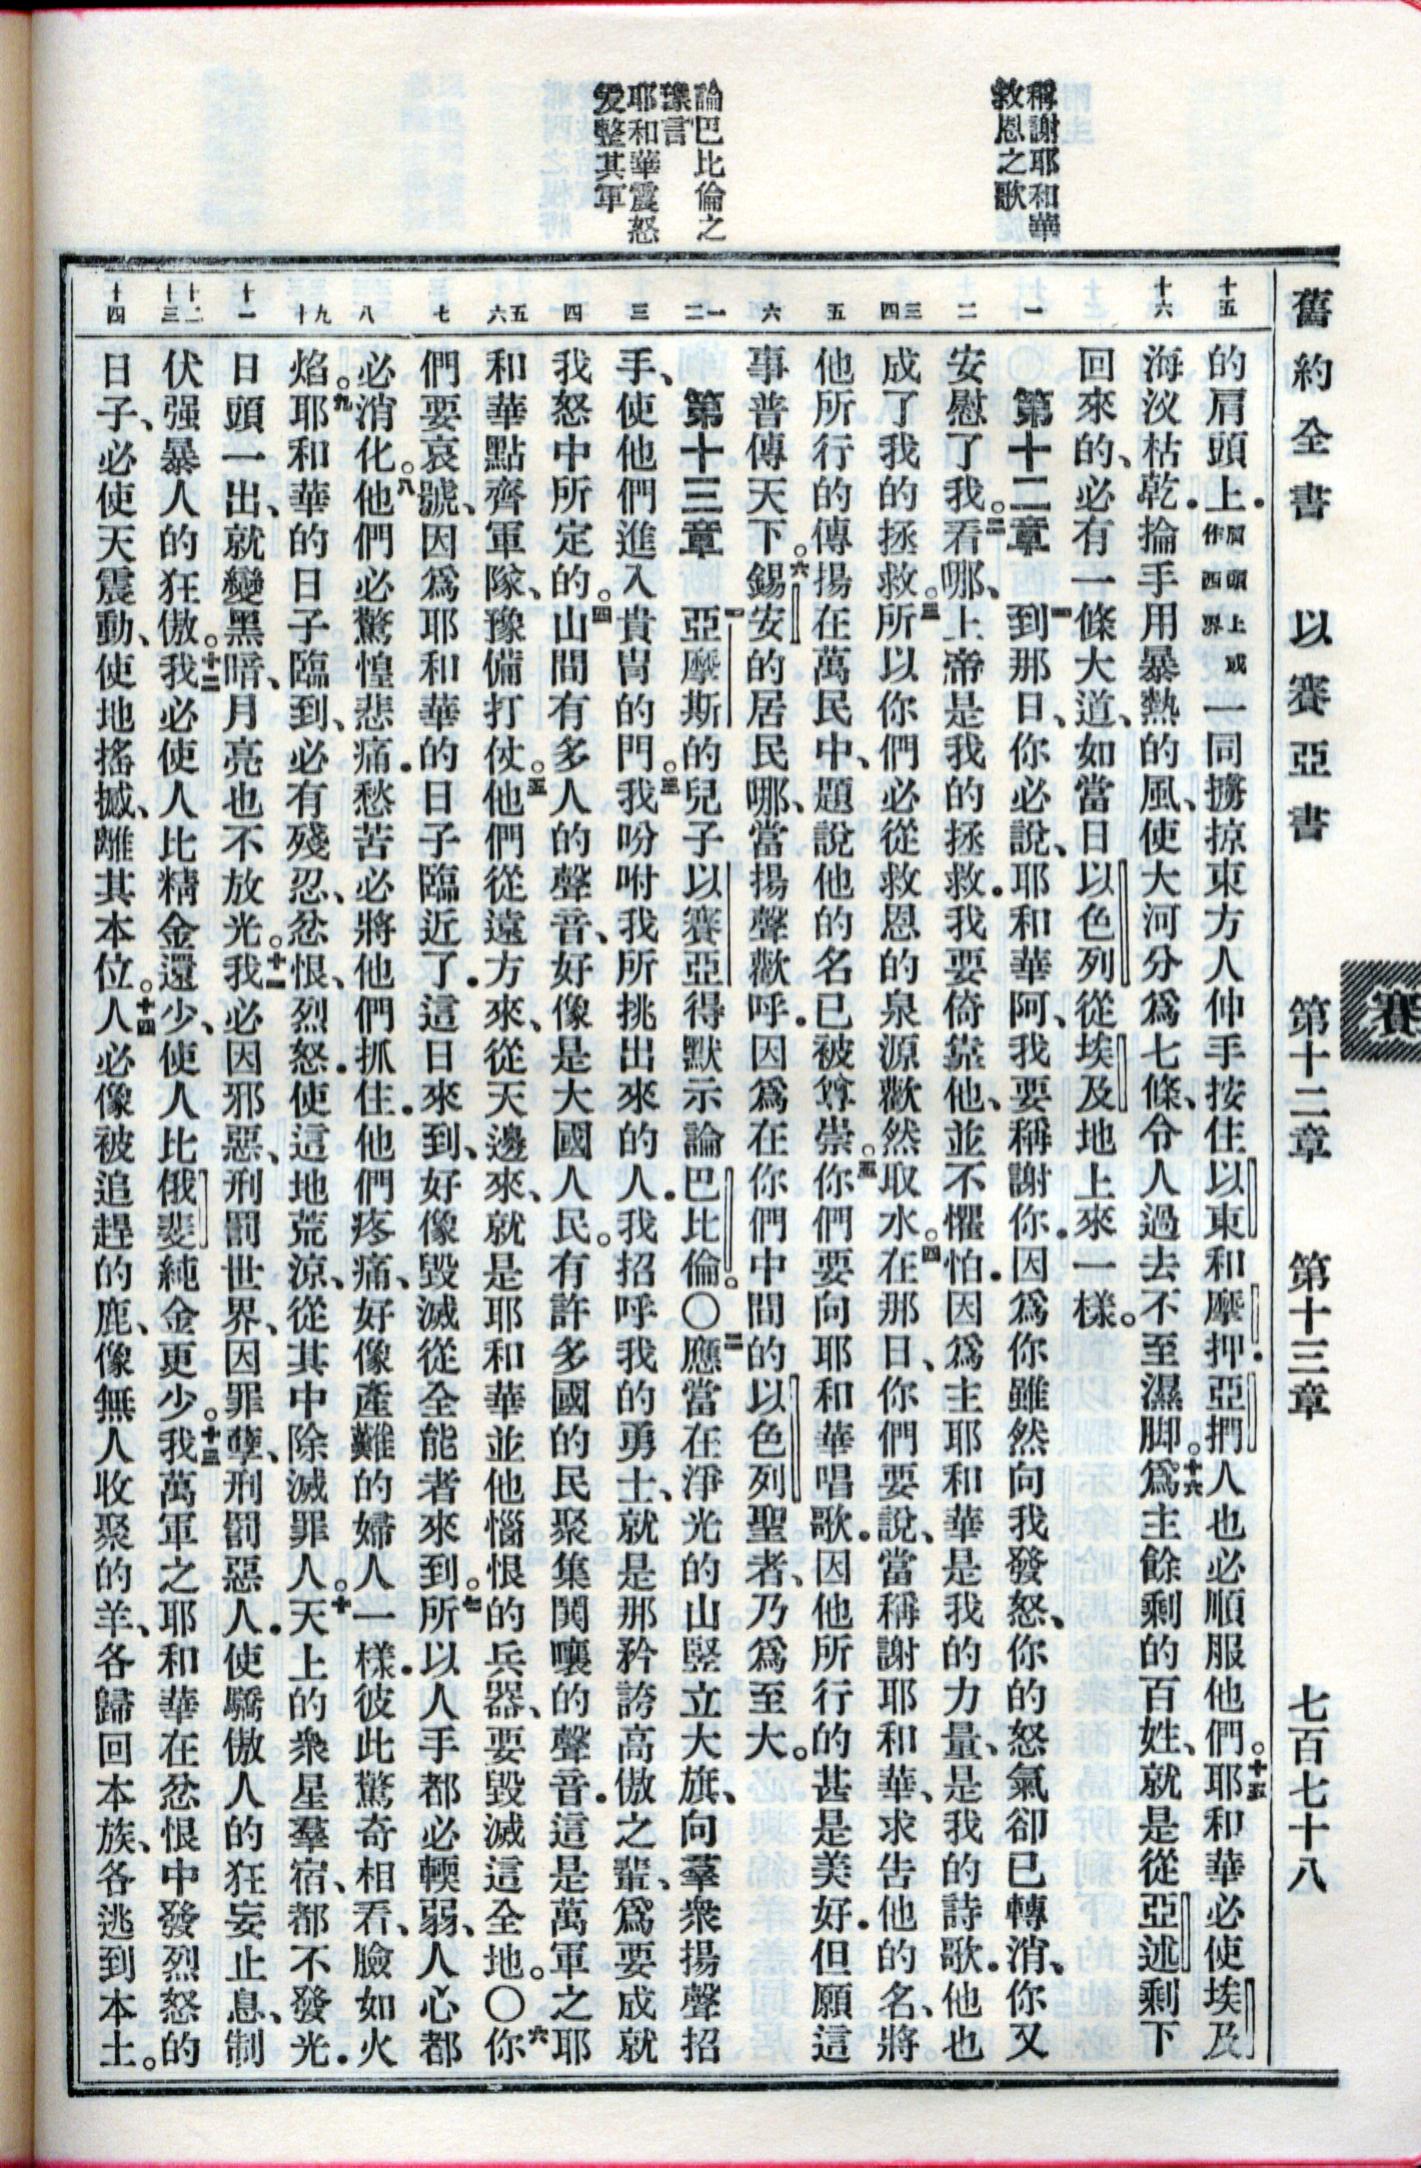 舊約全書　以賽亞書　第十二章　第十三章　七百七十八
賽
稱謝耶和華
救恩之歌
論巴比倫之
豫言
耶和華震怒
爰整其軍
十五
十六
一
二
三四
五
六
一二
三
四
五六
七
八
九十
十一
十二十三
十四
的肩頭上．肩頭上或作西界一同擄掠東方人伸手按住以東和摩押．亞捫人也必順服他們。十五耶和華必使埃及
海汊枯乾．掄手用暴熱的風、使大河分爲七條、令人過去不至濕脚。十六爲主餘剩的百姓、就是從亞述剩下
回來的、必有一條大道、如當日以色列從埃及地上來一樣。
第十二章　一到那日、你必說、耶和華阿、我要稱謝你．因爲你雖然向我發怒、你的怒氣卻已轉消、你又
安慰了我。二看哪、上帝是我的拯救．我要倚靠他、並不懼怕．因爲主耶和華是我的力量、是我的詩歌．他也
成了我的拯救。三所以你們必從救恩的泉源歡然取水。四在那日、你們要說、當稱謝耶和華、求告他的名、將
他所行的傳揚在萬民中、題說他的名已被尊崇。五你們要向耶和華唱歌．因他所行的甚是美好．但願這
事普傳天下。六錫安的居民哪、當揚聲歡呼．因爲在你們中間的以色列聖者、乃爲至大。
第十三章　一亞摩斯的兒子以賽亞得默示論巴比倫。〇二應當在淨光的山豎立大旗、向羣衆揚聲招
手、使他們進入貴冑的門。三我吩咐我所挑出來的人．我招呼我的勇士、就是那矜誇高傲之輩、爲要成就
我怒中所定的。四山間有多人的聲音、好像是大國人民。有許多國的民聚集鬨嚷的聲音．這是萬軍之耶
和華點齊軍隊、豫備打仗。五他們從遠方來、從天邊來、就是耶和華並他惱恨的兵器、要毀滅這全地。〇六你
們要哀號、因爲耶和華的日子臨近了．這日來到、好像毀滅從全能者來到。七所以人手都必輭弱、人心都
必消化。八他們必驚惶悲痛．愁苦必將他們抓住．他們疼痛、好像產難的婦人一樣．彼此驚奇相看、臉如火
焰。九耶和華的日子臨到、必有殘忍、忿恨、烈怒．使這地荒涼、從其中除滅罪人。十天上的衆星羣宿、都不發光．
日頭一出、就變黑暗、月亮也不放光。十一我必因邪惡、刑罰世界、因罪孽、刑罰惡人．使驕傲人的狂妄止息、制
伏强暴人的狂傲。十二我必使人比精金還少、使人比俄斐純金更少。十三我萬軍之耶和華在忿恨中發烈怒的
日子、必使天震動、使地搖撼、離其本位。十四人必像被追趕的鹿、像無人收聚的羊、各歸回本族、各逃到本土。